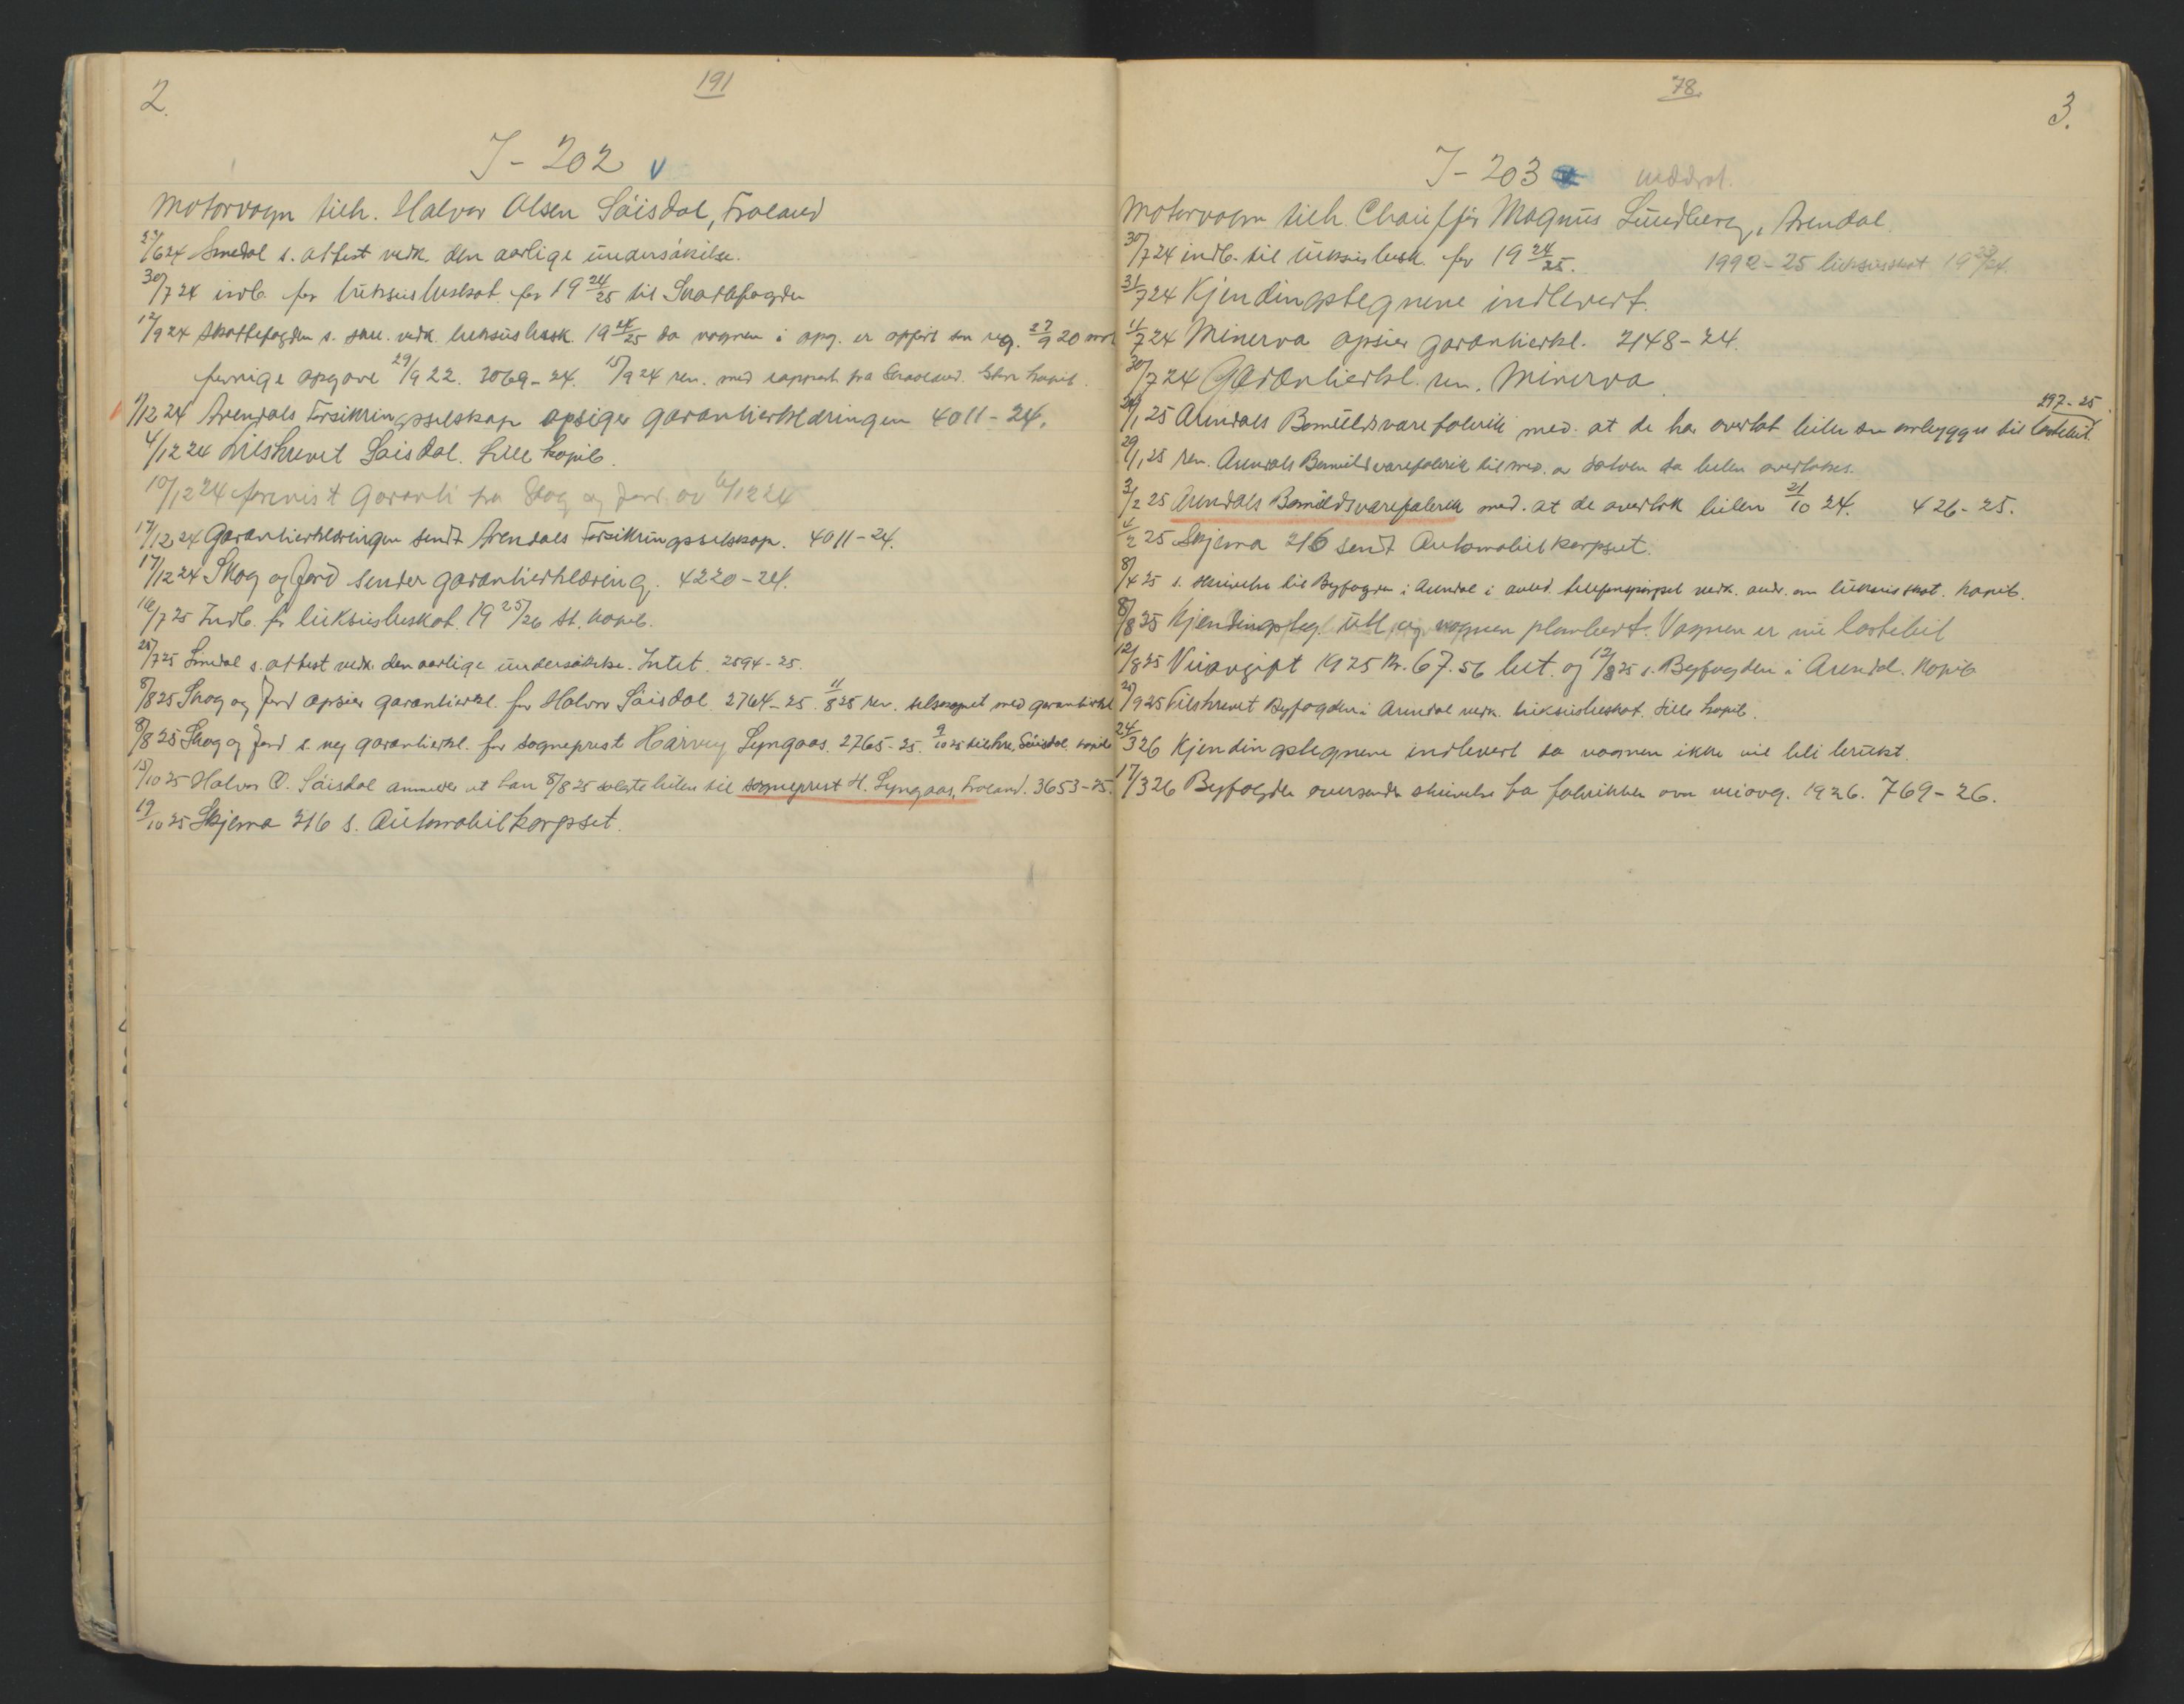 2.
191
I - 202 v
Motorvogn tilh. Halvor Olsen Säisdal, Froland
27/6 24 Smedal s. attest vedk. den aarlige undersøkelse.
30/7 24 indb. for luksusbeskat. for 19 24/25 til Skattefogden
12/9 24 Skattefogden s. skr. vedk. luksusbesk. 19 24/25 da vognen i opg. er opført som reg. 27/9 20 mot
forrige opgave 29/9 22. 3069-24. 15/9 24 ret. med rapport fra Store kopib.
1/12 24 Arendals Forsikringsselskap opsiger garantierklæringen 4011-24.
4/12 24 tilskrevet Säisdal. Lille kopib.
10/12 24 forevist garanti fra Skog og Jord av 6/12 24
17/12 24 Garantierklæringen sendt Arendals Forsikringsselskap. 4011-24.
17/12 24 Skog og Jord sender garantierklæring. 4220-24.
16/7 25 Indb. for luksusbeskat. 19 25/26 St. kopib.
25/7 25 Smedal s. attest vedk. den aarlige undersøkelse. Intet. 2594-25.
8/8 25 Skog og Jord opsier garantierkl. for Halvor Säisdal. 2764-25. 11/8 25 ret. selskapet med garantierkl
8/8 25 Skog og Jord s. ny garantierkl. for sogneprest Harvey Lyngaas. 2765-25. 9/10 25 tilskr. Säisdal. kopib
15/10 25 Halvor O. Säisdal anmelder at han 8/8 25 solgte bilen til sogneprest H. Lyngaas, Froland. 3653-25.
19/10 25 Skjema 216 s. Automobilkorpset.
78.
3.
I - 203
Motorvogn tilh. Chauffør Magnus Lundberg, Arendal.
30/7 24 indb. til luksusbesk. for 19 24/25. 1992-25 luksusskat 19 23/24.
31/7 24 Kjendingstegnene indlevert.
11/7 24 Minerva opsier garantierkl. 2148-24.
30/7 24 Garantierkl. ret. Minerva.
297-25.
24/1 25 Arendals Bomuldsvarefabrik med. at de har overtat bilen som ombygges til lastebil.
29/1 25 ret. Arendals Bomuldsvarefabrik til med. av datoen da bilen overtokes.
3/2 25 Arendals Bomuldsvarefabrik med. at de overtok bilen 21/10 24. 426-25.
4/2 25 Skjema 216 sendt Automobilkorpset.
8/4 25 s. skrivelse til Byfogden i Arendal i anled. telefonspørsel vedk. andr. om luksusskat. kopib.
8/8 25 Kjendingsteg. utl. og vognen plombert. Vognen er nu lastebil
12/8 25 Veiavgift 1925 Kr. 67.56 bet. og 12/8 25 s. Byfogden i Arendal. kopib
25/9 25 tilskrevet Byfogden i Arendal vedk. luksusbeskat. Lille kopib.
24/3 26 Kjendingstegnene indlevert da vognen ikke vil bli brukt.
17/3 26 Byfogden oversender skrivelse fra fabrikken om veiavg. 1926. 769-26.